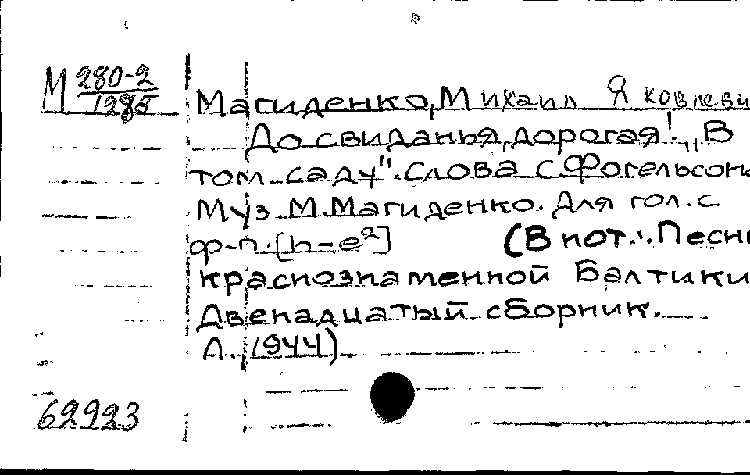 М 280-2
1285
Магиденко, Михаил Яковлеви
До свиданья, дорогая! „В
том саду". Слова С Фогельсон
Муз М. Магиденко. Для гол. с
ф-п. [h-e²] (В нот.: Песни
краснознаменной Балтики
Двенадцатый сборник.
Л., 1944)
62923